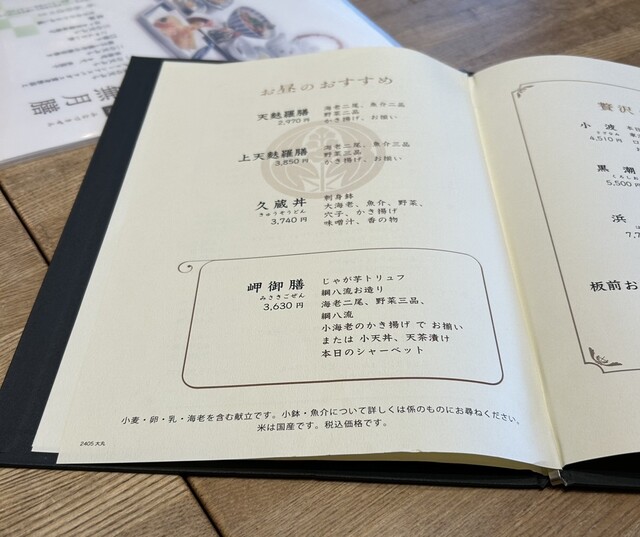 お昼のおすすめ
天麩羅膳
2,970円
海老二尾、魚介二品
野菜二品
かき揚げ、お揃い
上天麩羅膳
3,850円
海老二尾、魚介三品
野菜三品
かき揚げ、お揃い
久蔵丼
きゅうぞうどん
3,740円
刺身鉢
大海老、魚介、野菜、
穴子、かき揚げ
味噌汁、香の物
岬御膳
みさきごぜん
3,630円
じゃが芋トリュフ
綱八流お造り
海老二尾、野菜三品、
綱八流
小海老のかき揚げ で お揃い
または 小天丼、天茶漬け
本日のシャーベット
小麦・卵・乳・海老を含む献立です。小鉢・魚介について詳しくは係のものにお尋ねください。
米は国産です。税込価格です。
2405 大丸
贅沢
小波
さざなみ
4,510円
黒潮
くろしお
5,500
浜
7,7
板前お
月膳